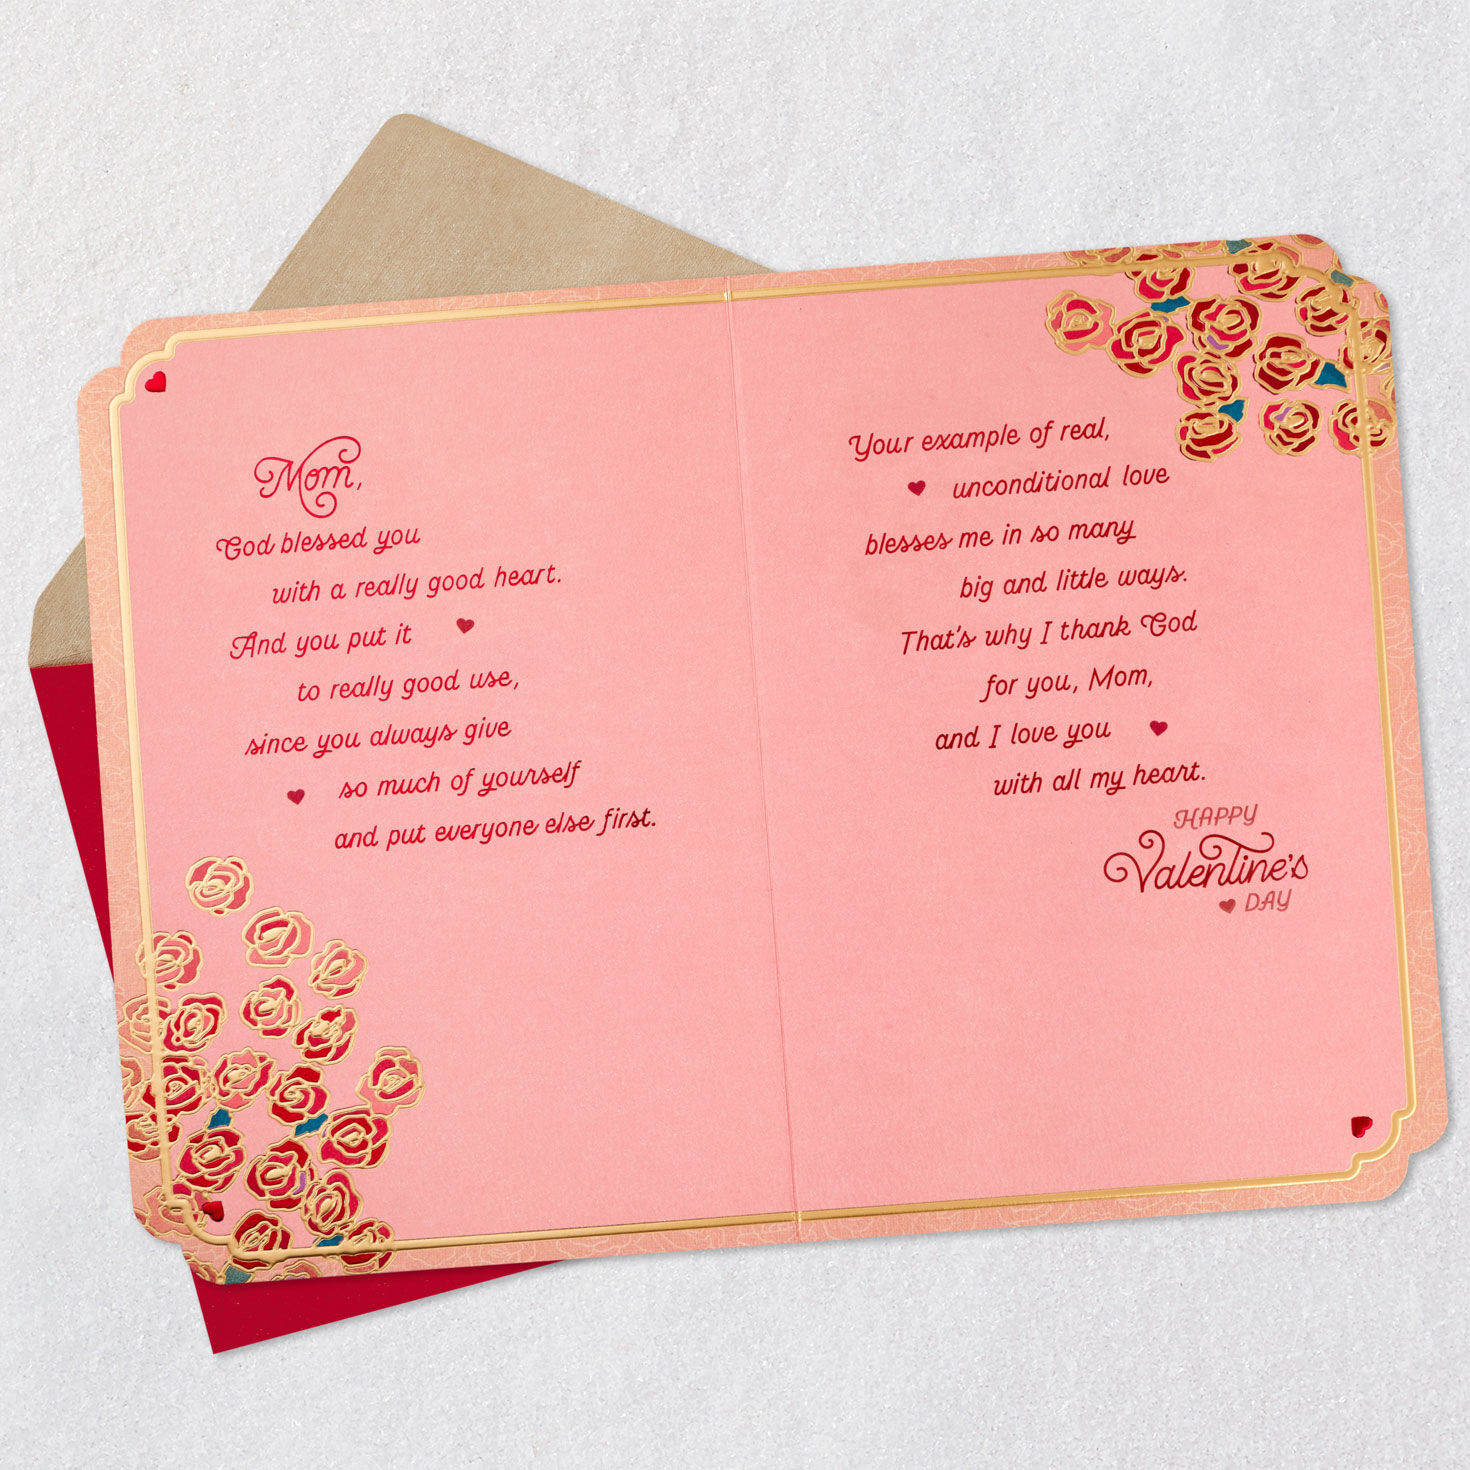 Mom,
God blessed you
with a really good heart.
And you put it
to really good use,
since you always give
so much of yourself
and put everyone else first.
Your example of real,
unconditional love
blesses me in so many
big and little ways.
That's why I thank God
for you, Mom,
and I love you
with all my heart.
HAPPY
Valentine's
DAY